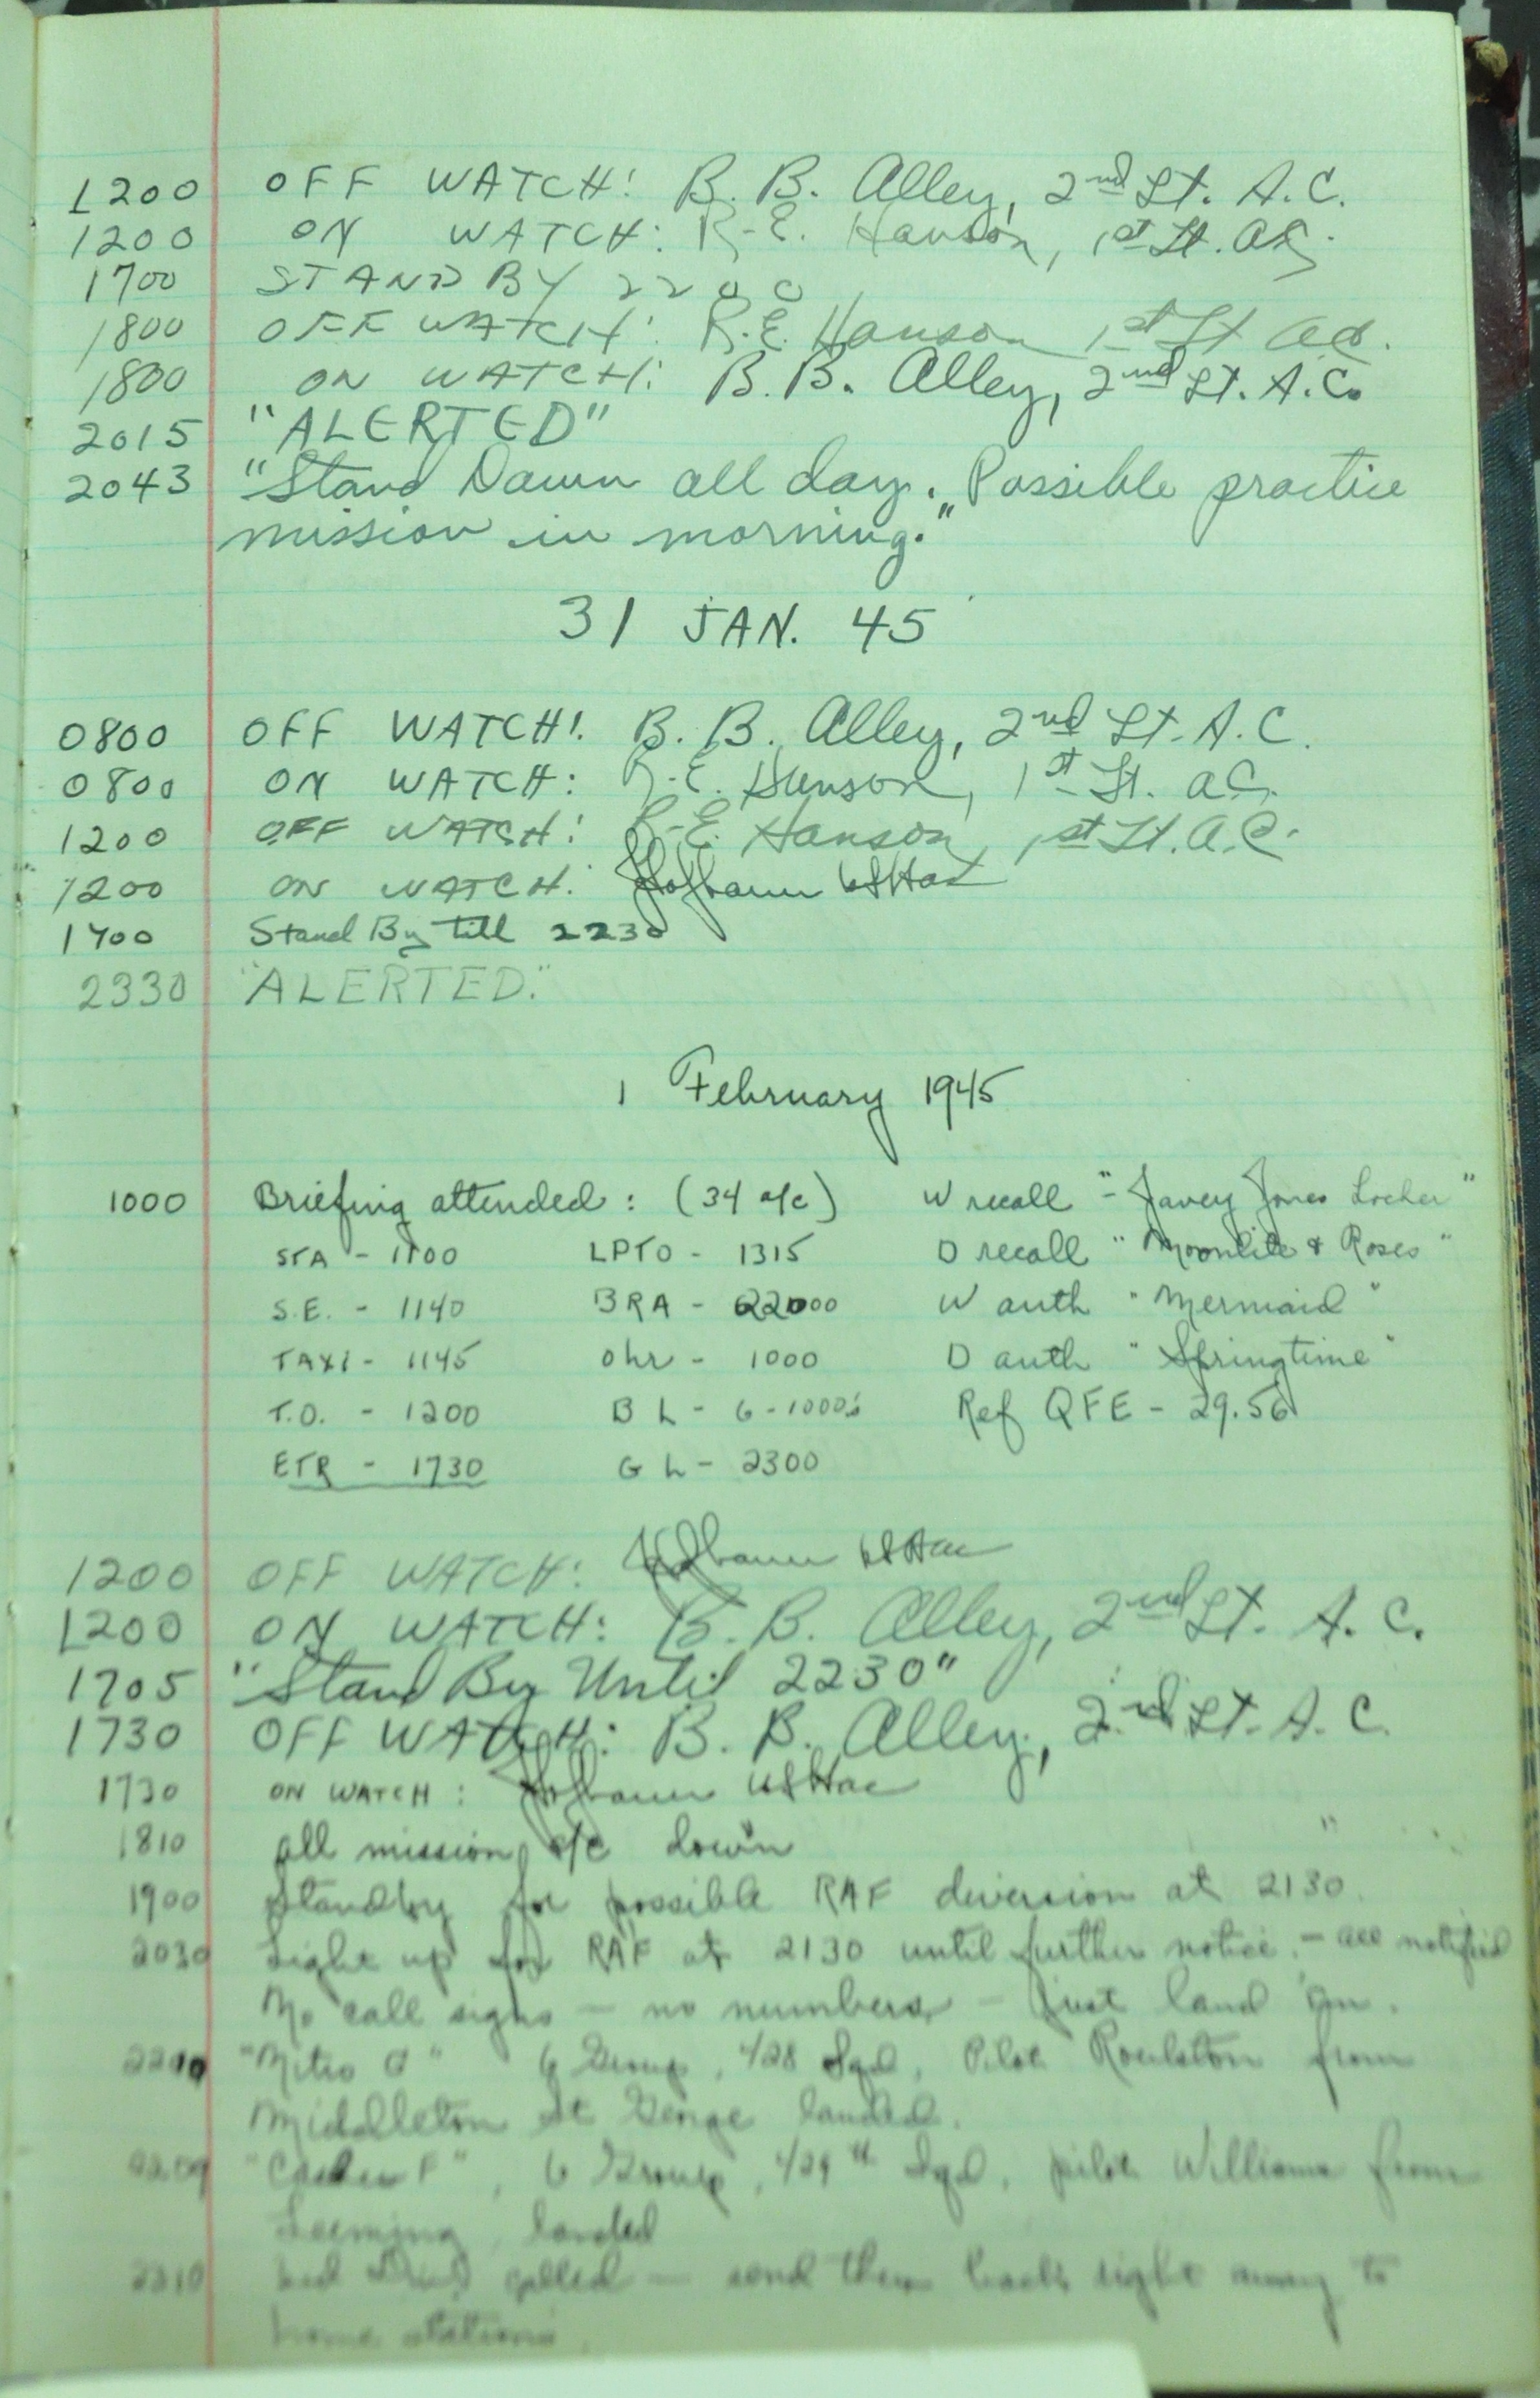 1200 OFF WATCH: B. B. Alley, 2nd Lt. A.C.
1200 ON WATCH: R.E. Hanson, 1st Lt. AC.
1700 STAND BY 2200
1800 OFF WATCH: R.E. Hanson 1st Lt AC.
1800 ON WATCH: B. B. Alley, 2nd Lt. A.C.
2015 "ALERTED"
2043 "Stand Down all day. Possible practice
mission in morning."
31 JAN. 45
0800 OFF WATCH: B. B. Alley, 2nd Lt. A.C.
0800 ON WATCH: R.E. Hanson, 1st Lt. AC.
1200 OFF WATCH: R.E. Hanson, 1st Lt. A.C.
1200 ON WATCH:
1700 Stand By till 2230
2330 "ALERTED."
1 February 1945
1000 Briefing attended: (34 a/c) W recall "Davey Jones Locker"
STA - 1100 LPTO - 1315 D recall "Moonlite & Roses"
S.E. - 1140 BRA - 22000 W auth "Mermaid"
TAXI - 1145 Ohr - 1000 D auth "Springtime"
T.O. - 1200 B L - 6-1000's Ref QFE - 29.56
ETR - 1730 G L - 2300
1200 OFF WATCH:
1200 ON WATCH: B. B. Alley, 2nd Lt. A. C.
1705 "Stand By Until 2230"
1730 OFF WATCH: B. B. Alley, 2nd Lt. A. C.
1730 ON WATCH:
1810 all mission a/c down
1900 Standby for possible RAF diversion at 2130.
2030 Light up for RAF at 2130 until further notice. - all notified
No call signs - no numbers - just land 'em.
"Mitro 6 Group, 428 Sqd, Pilot Roulston from
Middleton St George landed.
6 Group, 429th Sqd, pilot Williams from
Leeming, landed
2210 called - send them back right away to
home stations